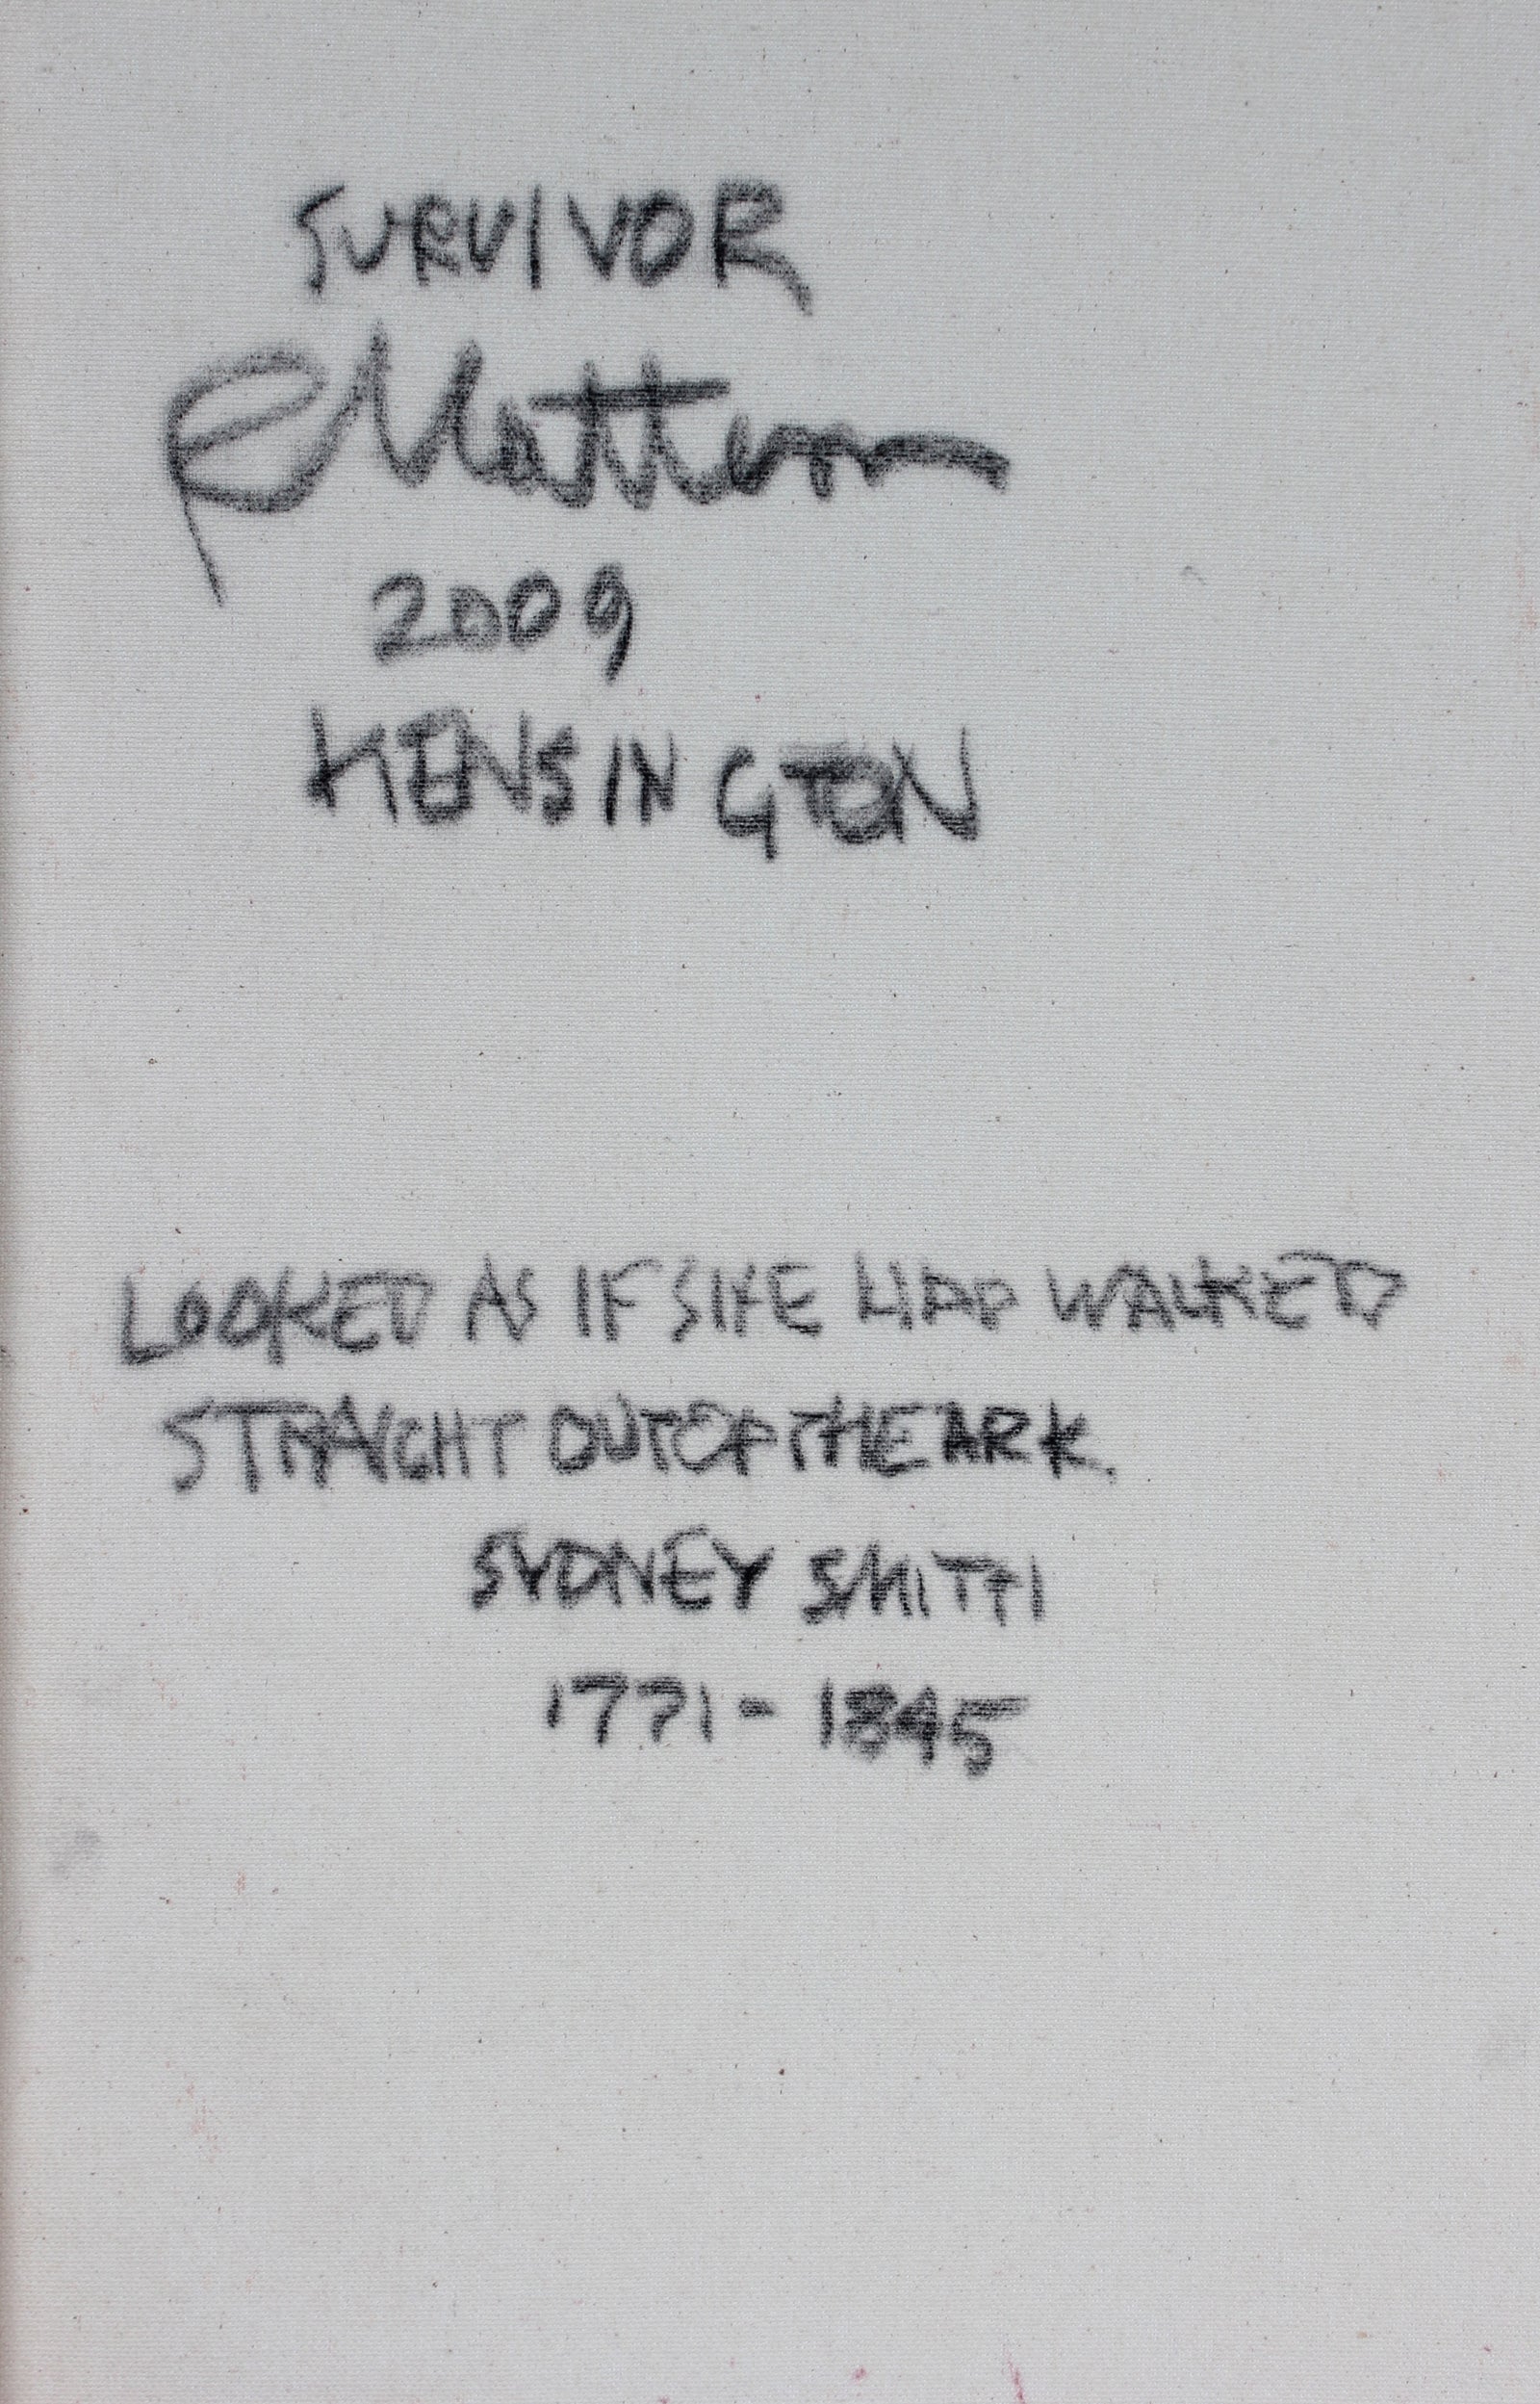 SURVIVOR
2009
KENSINGTON
LOOKED AS IF SHE HAD WALKED
STRAIGHT OUT OF THE ARK.
SYDNEY SMITH
1771-1845